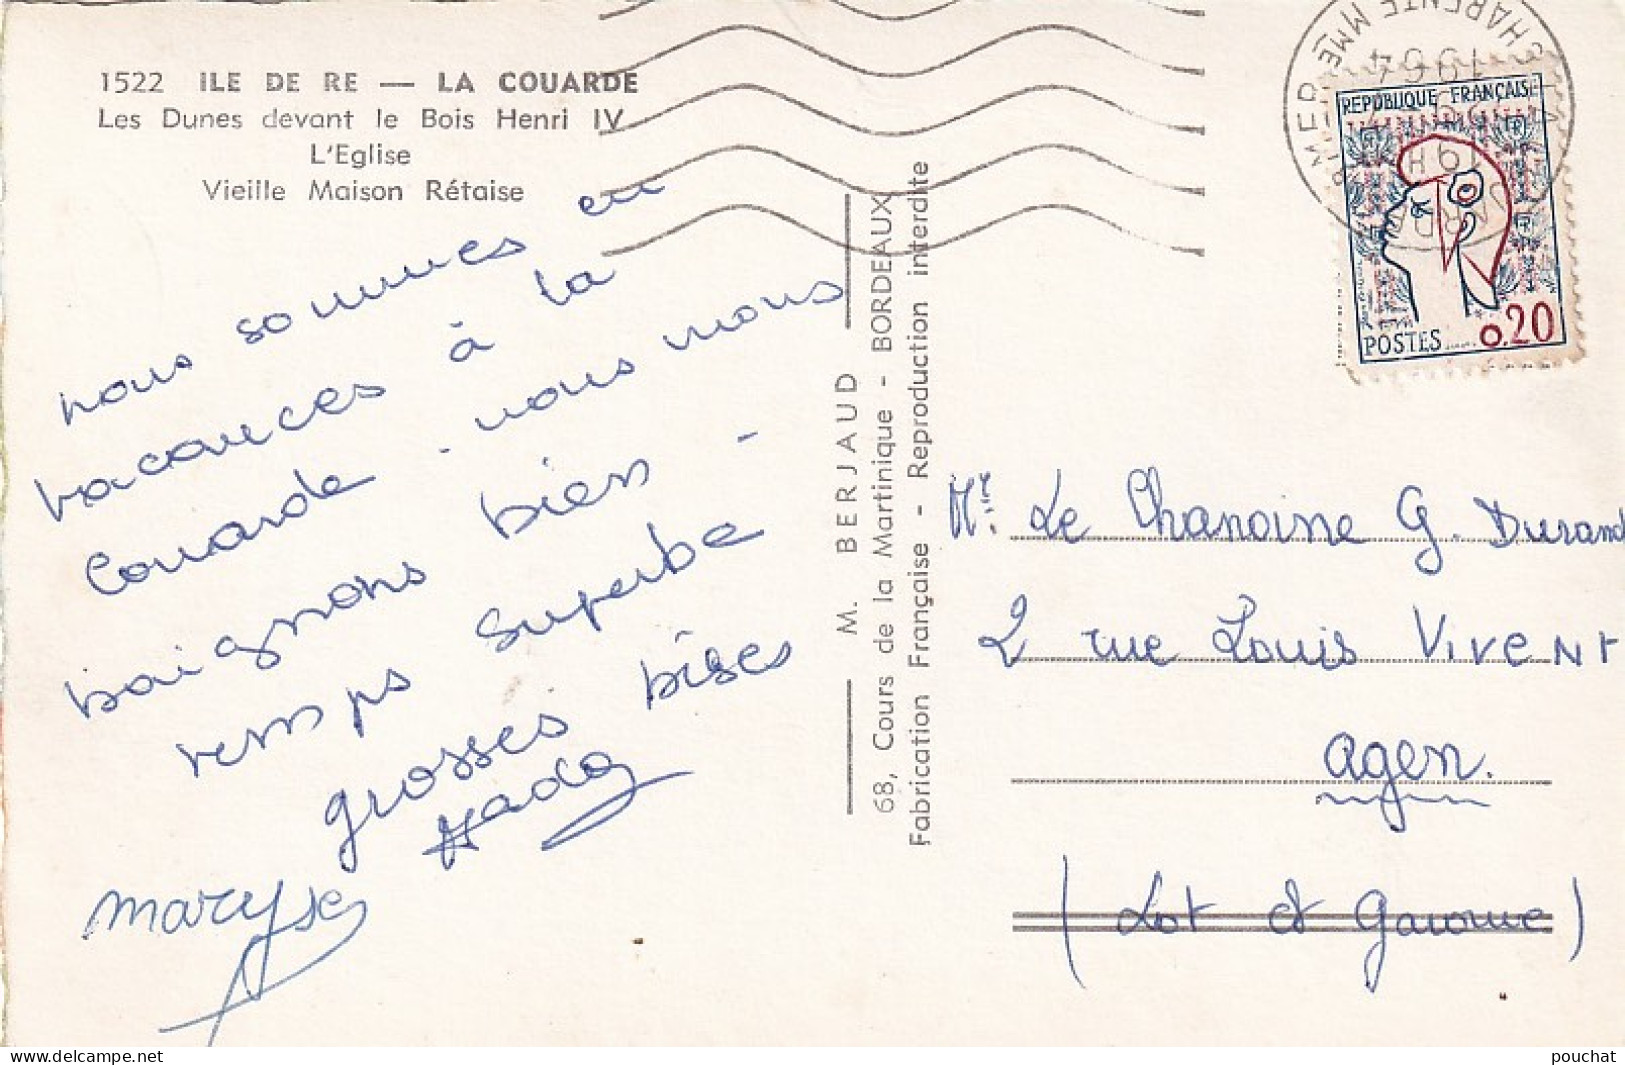 1522 ILE DE RE — LA COUARDE
Les Dunes devant le Bois Henri IV
L'Eglise
Vieille Maison Rétaise
nous sommes en
vacances à la
Couarde . nous nous
baignons bien -
temps superbe
grosses bises
Nadg
maryse
M. BERJAUD
68, Cours de la Martinique - BORDEAUX
Fabrication Française - Reproduction interdite
CHARENTE MME
1964
19H
REPUBLIQUE FRANÇAISE
POSTES 0.20
Mr. Le Chanoine G. Durand
2 rue Louis Vivent
Agen.
(Lot et Garonne)
pouchat